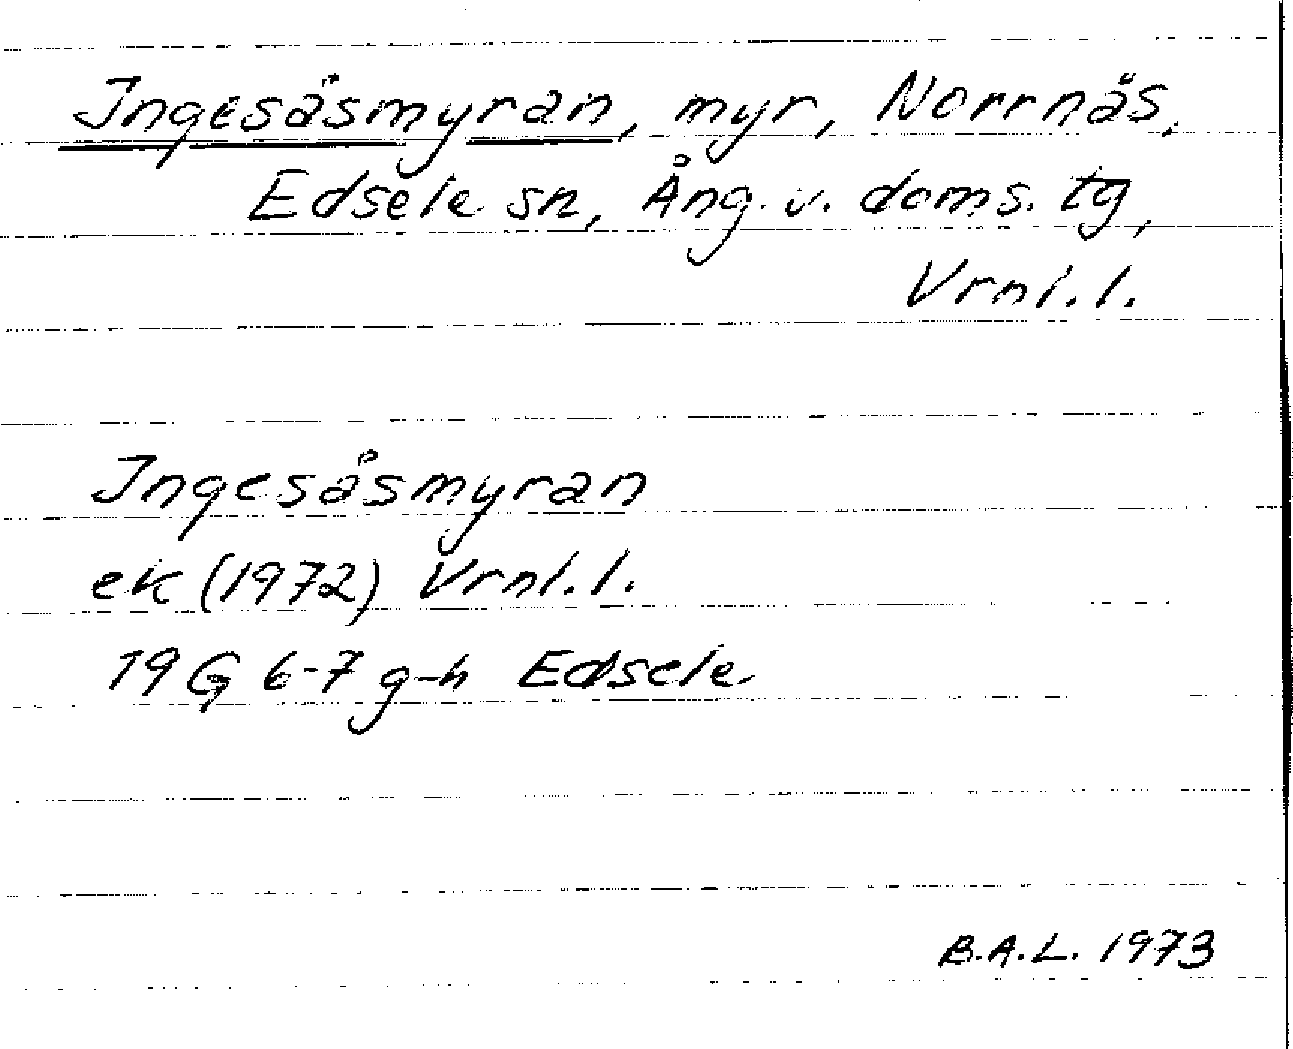 Ingesåsmyran, myr, Norrnäs,
Edsele sn, Ång. v. doms. tg,
Vrnl. l.
Ingesåsmyran
ek (1972) Vrnl. l.
19G 6-7 g-h Edsele
B.A.L. 1973